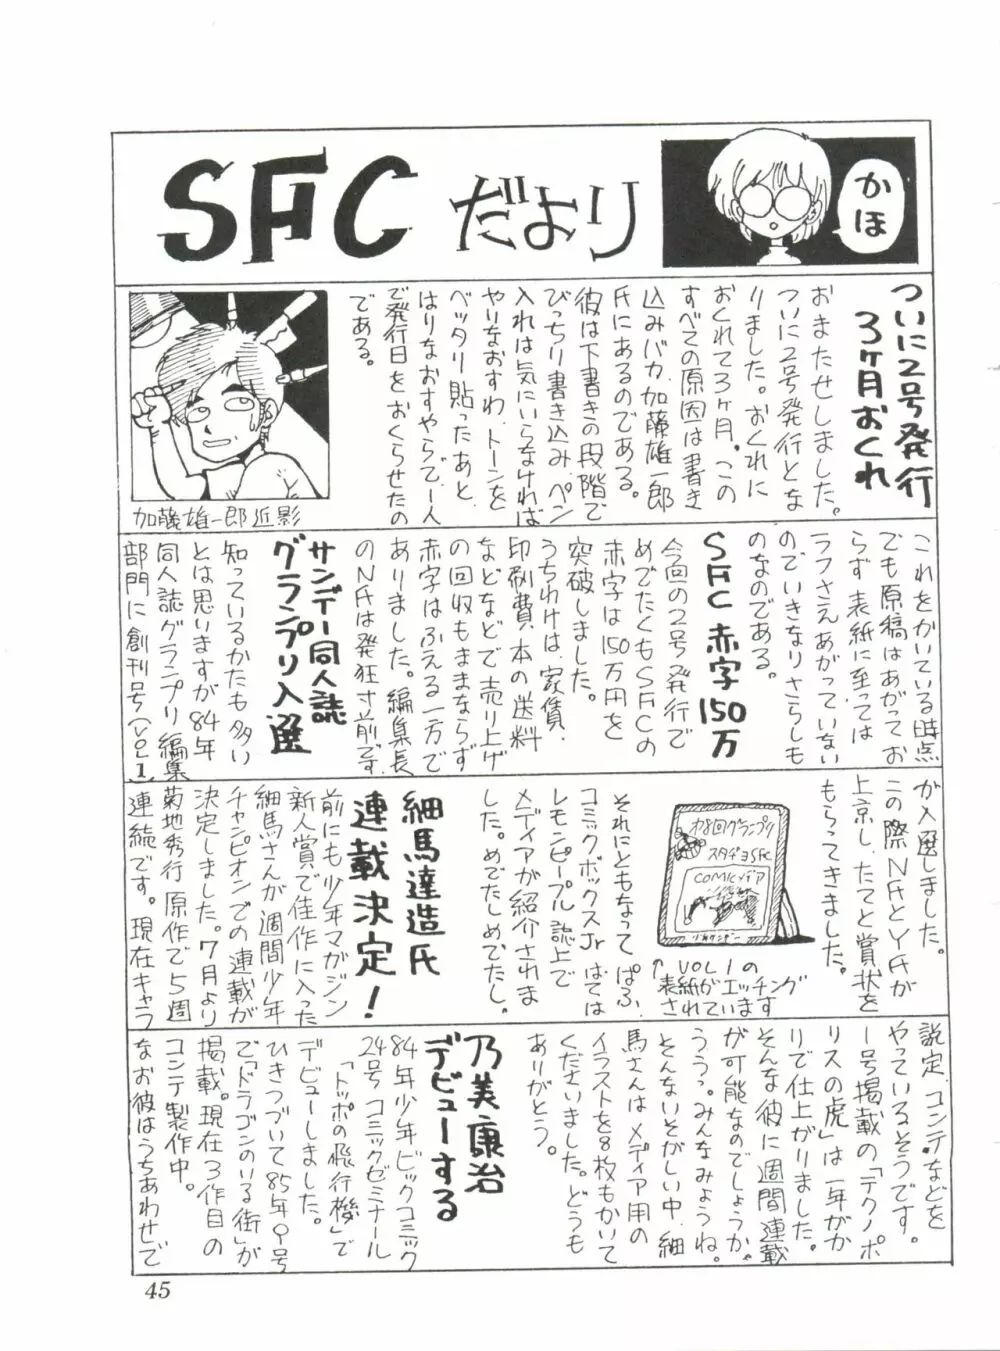 SFCだより
かほ
ついに2号発行
3ヶ月おくれ
おまたせしました。
ついに2号発行とな
りました。おくれに
おくれて3ヶ月。この
すべての原因は書き
込みバカ、加藤雄一郎
氏にあるのである。
彼は下書きの段階で
びっちり書き込み、ペン
入れは気にいらなければ
やりなおすわ、トーンを
ベッタリ貼ったあと、
はりなおすやらで、一人
で発行日をおくらせたの
である。
加藤雄一郎近影
これをかいている時点
でも原稿はあがってお
らず表紙に至っては
ラフさえあがっていない
のでいきなりさらしも
のなのである。
SFC赤字150万
今回の2号発行で
めでたくもSFCの
赤字は150万円を
突破しました。
うちわけは、家賃、
印刷費、本の送料
などなどで売り上げ
の回収もままならず
赤字はふえる一方で
ありました。編集長
のN氏は発狂寸前です。
サンデー同人誌
グランプリ入選
知っているかたも多い
とは思いますが84年
同人誌グランプリ編集
部門に創刊号(VOL1)
が入選しました。
この際N氏とY氏が
上京し、たてと賞状を
もらってきました。
才8回グランプリ
スタヂヨSFC
COMICメデア
少年サンデー
↑VOL1の
表紙がエッチング
されています
それにともなって ぱふ、
コミックボックスJr.はては
レモンピープル誌上で
メディアが紹介されま
した。めでたしめでたし。
細馬達造氏
連載決定!
前にも少年マガジン
新人賞で佳作に入った
細馬さんが週間少年
チャンピオンでの連載が
決定しました。7月より
菊地秀行原作で5週
連続です。現在キャラ
設定、コンテなどを
やっているそうです。
1号掲載の「テクノポ
リスの虎」は一年がか
りで仕上がりました。
そんな彼に週間連載
が可能なのでしょうか。
ううっ。みんなみょうね。
とそんないそがしい中、細
馬さんはメディア用の
イラストを8枚もかいて
くださいました。どうも
ありがとう。
乃美康治
デビューする
84年少年ビックコミック
24号コミックゼミナール
「トッポの飛行機」で
デビューしました。
ひきつづいて85年9号
で「ドラゴンのいる街」が
掲載。現在3作目の
コンテ製作中。
なお彼はうちあわせで
45